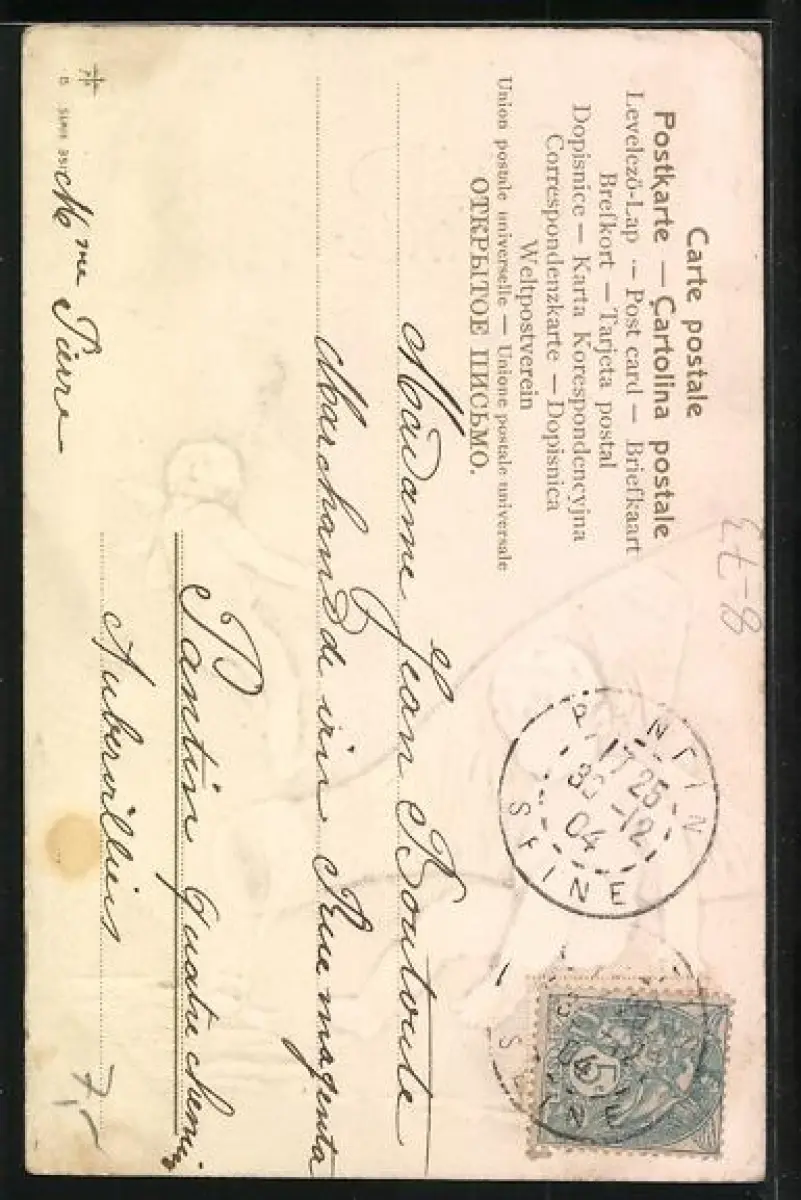 Carte postale
Postkarte — Cartolina postale
Levelező-Lap — Post card — Briefkaart
Brefkort — Tarjeta postal
Dopisnice — Karta Korespondencyjna
Correspondenzkarte — Dopisnica
Weltpostverein
Union postale universelle — Unione postale universale
ОТКРЫТОЕ ПИСЬМО.
PANTIN
17 25
30 -12
04
SEINE
5
Madame Jean Boutoute
Marchand de vin Rue magenta
Pantin quatre chemin
Aubervilliers
Mme Pierre
SERIE 351